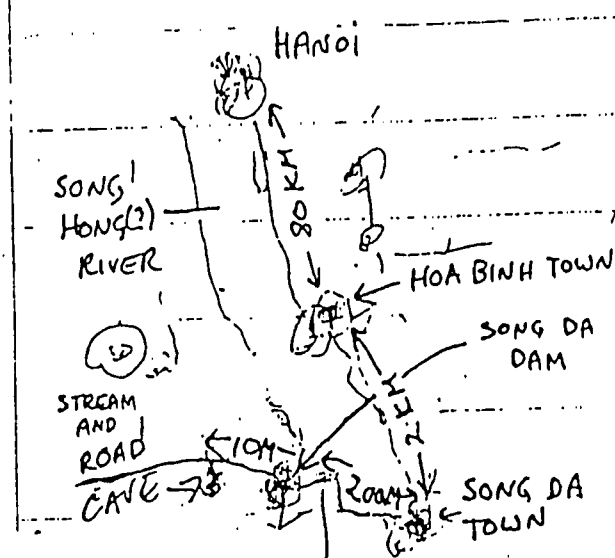 HANOI
80 KM
SONG
HONG(?)
RIVER
HOA BINH TOWN
SONG DA
DAM
2 KM
STREAM
AND
ROAD
10M
CAVE
200M
SONG DA
TOWN